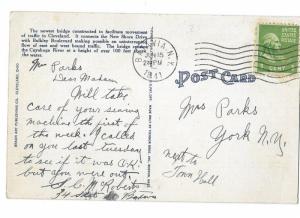 The newest bridge constructed to facilitate movement
of traffic in Cleveland. It connects the New Shore Drive
with Bulkley Boulevard making possible an uninterrupted
flow of east and west bound traffic. The bridge crosses
the Cuyahoga River at a height of over 100 feet above
the water.
Mrs Parks
Dear Madam
Will take
care of your sewing
machine the first of
the week. I called
on you last tuesday
to see if it was O.K.
but you were out.
Roberts
N.Y.
15
PM
1941
POST CARD
1 CENT 1
Mrs Parks
York N.Y.
next to
Town Hall